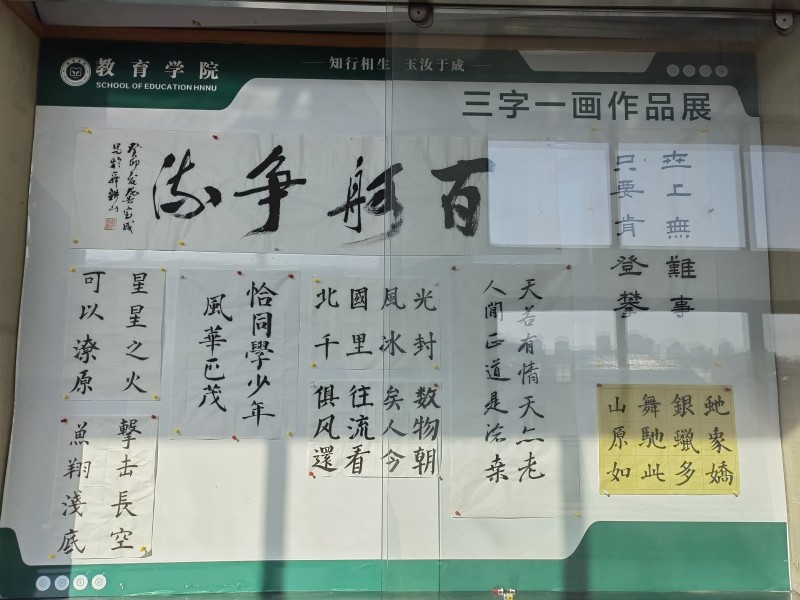 教育学院
SCHOOL OF EDUCATION HNNU
知行相生 玉汝于成
三字一画作品展
百舸争流
癸卯
世上無難事
只要肯登攀
星星之火
可以潦原
恰同學少年
風華正茂
北國風光
千里冰封
俱往矣数
风流人物
還看今朝
天若有情天亦老
人間正道是滄桑
山舞銀虵
原馳蠟象
如此多嬌
擊击長空
魚翔淺底